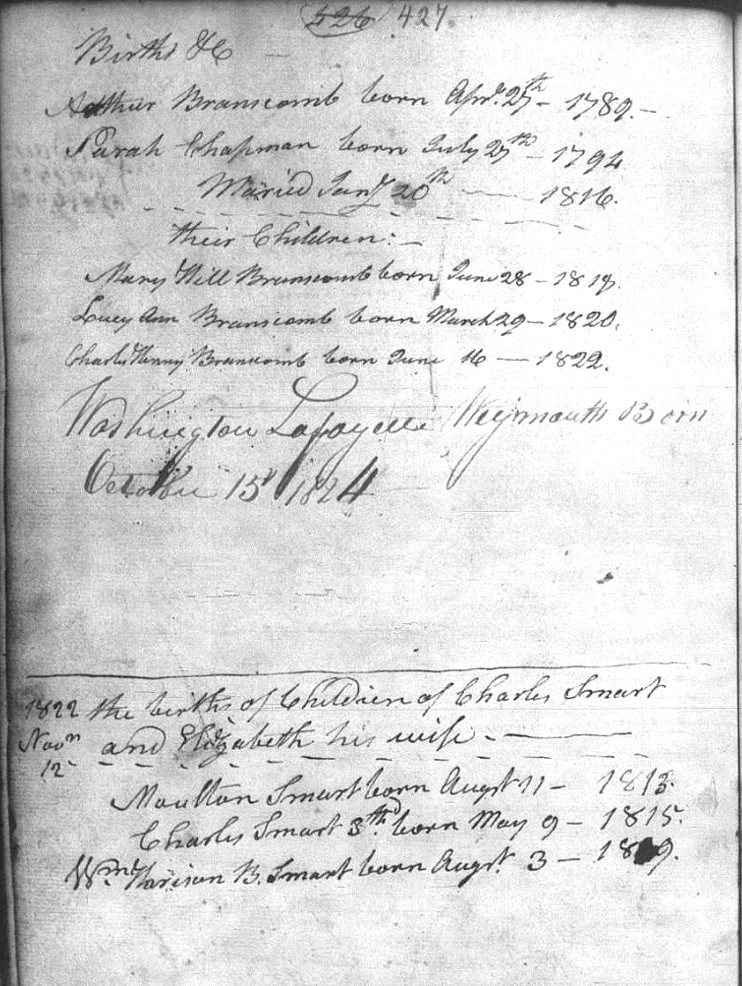 526 427.
Births &c
Arthur Branscomb born Apr. 27th - 1789. -
Sarah Chapman born July 27th - 1794
Maried Jany 20th - 1816.
their Children: -
Mary Hill Branscomb born June 28 - 1818.
Lucy Ann Branscomb born March 29 - 1820.
Charls Henny Branscomb born June 16 - 1822.
Washington Lafayette Weymouth Born
October 15 1824
1822 the births of Children of Charls Smart
Novm and Elizabeth his wife. -
12
Moulton Smart born Augst 11 - 1813.
Charls Smart 3thd born May 9 - 1815.
Wm Harison B. Smart born Augst. 3 - 1819.